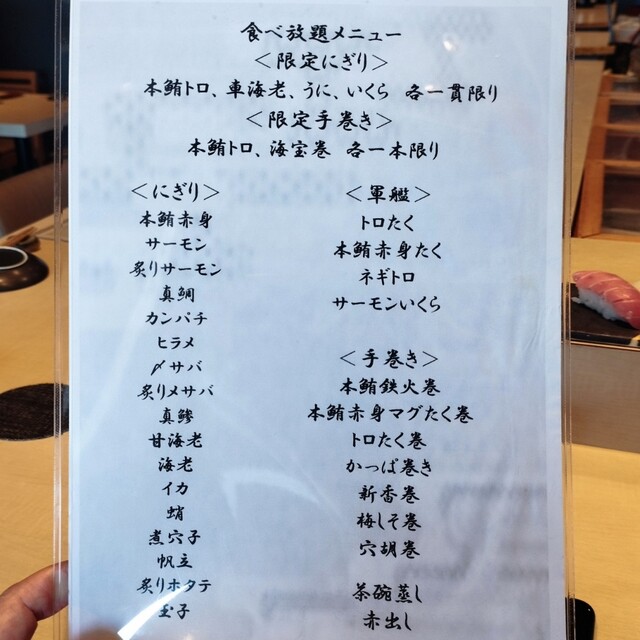 食べ放題メニュー
＜限定にぎり＞
本鮪トロ、車海老、うに、いくら 各一貫限り
＜限定手巻き＞
本鮪トロ、海宝巻 各一本限り
＜にぎり＞
本鮪赤身
サーモン
炙りサーモン
真鯛
カンパチ
ヒラメ
〆サバ
炙り〆サバ
真鯵
甘海老
海老
イカ
蛸
煮穴子
帆立
炙りホタテ
玉子
＜軍艦＞
トロたく
本鮪赤身たく
ネギトロ
サーモンいくら
＜手巻き＞
本鮪鉄火巻
本鮪赤身マグたく巻
トロたく巻
かっぱ巻き
新香巻
梅しそ巻
穴胡巻
茶碗蒸し
赤出し